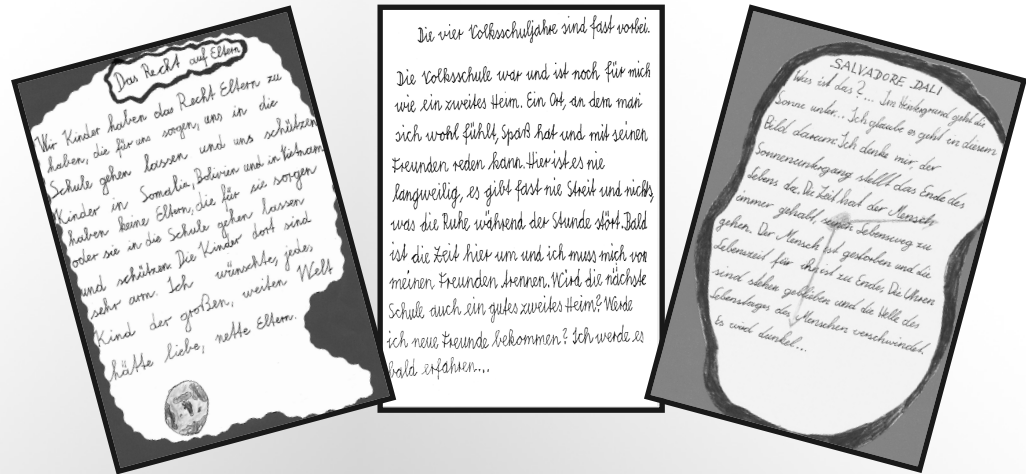 Das Recht auf Eltern
Wir Kinder haben das Recht Eltern zu
haben, die für uns sorgen, uns in die
Schule gehen lassen und uns schützen.
Kinder in Somalia, Bolivien und in Vietnam
haben keine Eltern, die für sie sorgen
oder sie in die Schule gehen lassen
und schützen. Die Kinder dort sind
sehr arm. Ich wünschte, jedes
Kind der großen, weiten Welt
hätte liebe, nette Eltern.
Die vier Volksschuljahre sind fast vorbei.
Die Volksschule war und ist noch für mich
wie ein zweites Heim. Ein Ort, an dem man
sich wohl fühlt, Spaß hat und mit seinen
Freunden reden kann. Hier ist es nie
langweilig, es gibt fast nie Streit und nichts,
was die Ruhe während der Stunde stört. Bald
ist die Zeit hier um und ich muss mich von
meinen Freunden trennen. Wird die nächste
Schule auch ein gutes zweites Heim? Werde
ich neue Freunde bekommen? Ich werde es
bald erfahren...
SALVADORE DALI
Was ist das?... Im Hintergrund geht die
Sonne unter... Ich glaube es geht in diesem
Bild darum: Ich denke mir, der
Sonnenuntergang stellt das Ende des
Lebens da. Die Zeit hat der Mensch
immer gehabt, seinen Lebensweg zu
gehen. Der Mensch ist gestorben und die
Lebenszeit für ihn ist zu Ende. Die Uhren
sind stehen geblieben und die Helle des
Lebenstages des Menschen verschwindet.
Es wird dunkel...